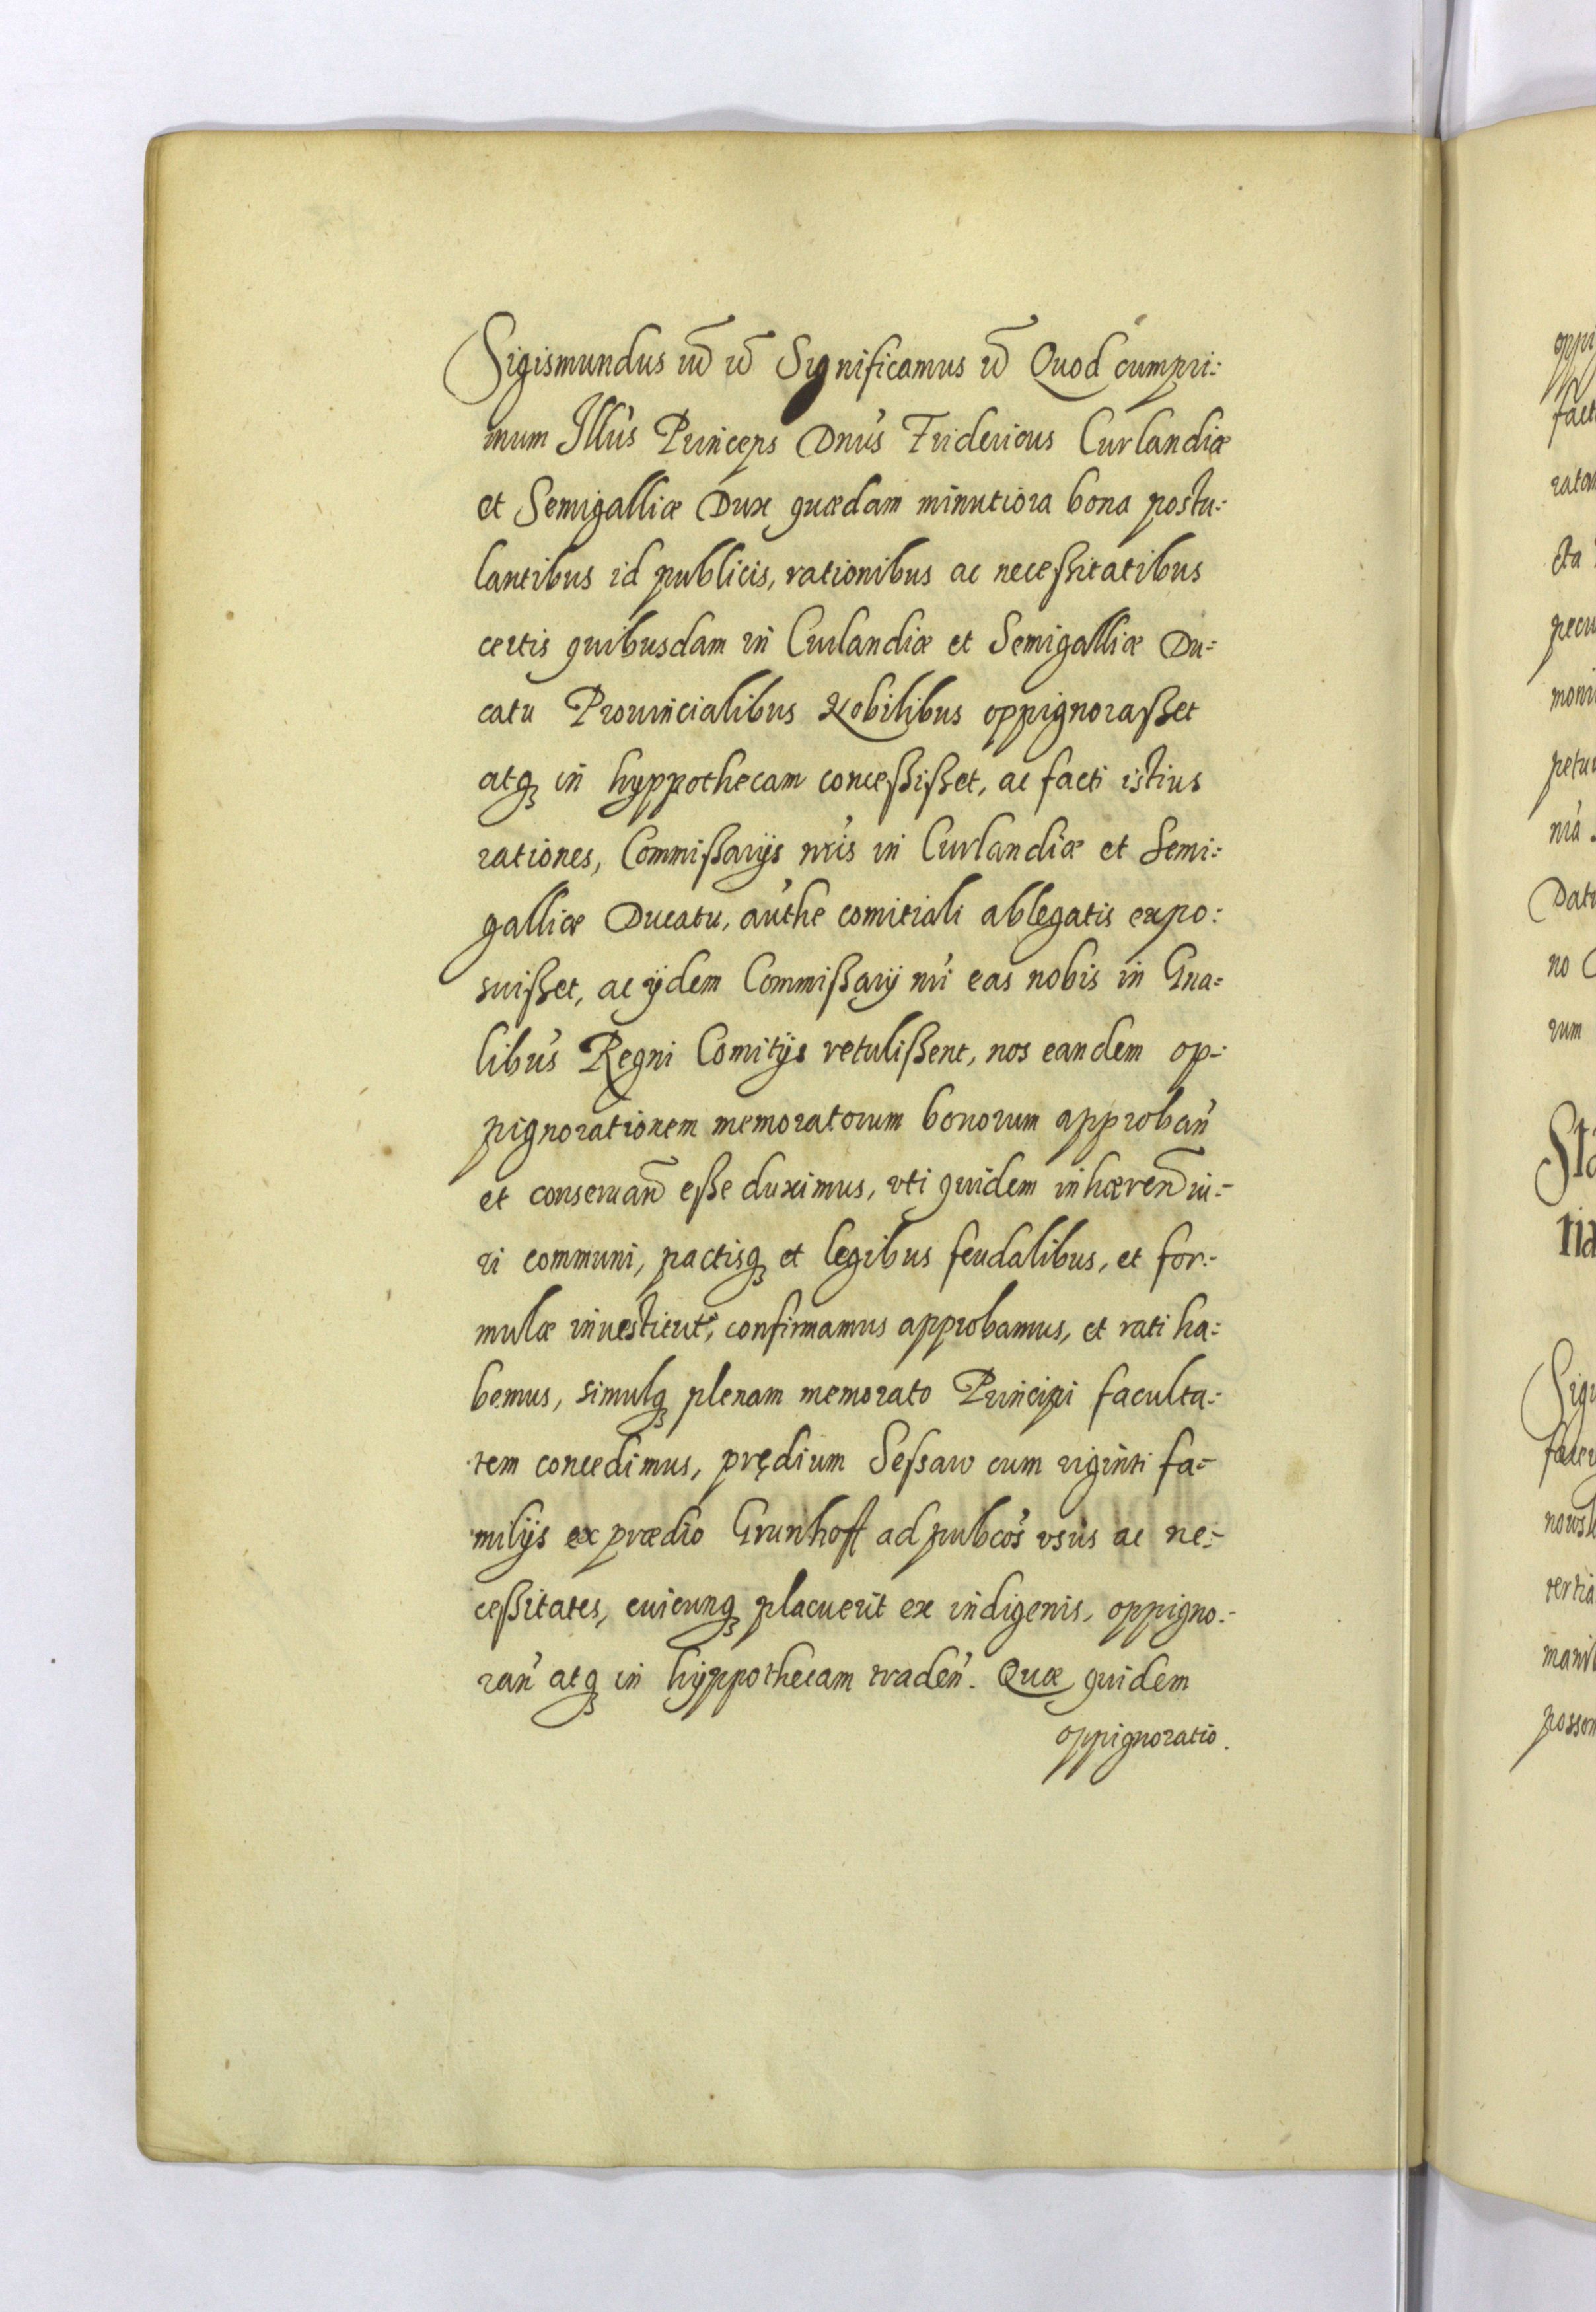 Sigismundus iiī iī Significamus iī Quod cumpri:
mum Illu's Princeps Dnu's Fridericus Curlandiæ
et Semigalliæ Dux quædam minutiora bona postu:
lantibus id publicis, rationibus ac neceßitatibus
certis quibusdam in Curlandiæ et Semigalliæ Du=
catu Prouincialibus Nobilibus oppignoraßet
atq₃ in hyppothecam conceßißet, ac facti istius
rationes, Commißarijs nr'is in Curlandiæ et Semi:
galliæ Ducatu, au'the comitiali ablegatis expo:
suißet, ac ijdem Commißarij nr'i eas nobis in Gna=
libu's Regni Comitijs retulißent, nos eandem op-:
pignorationem memoratorum bonorum approban'
et conseruan̄ eße duximus, vti quidem inhæren̄ iu-:
ri communi, pactisq₃ et legibus feudalibus, et for:-
mulæ inuestitut'ę, confirmamus approbamus, et rati ha:
bemus, simulq₃ plenam memorato Principi faculta:
tem concedimus, prędium Sessaw cum viginti fa-:
milijs ex prædio Grunhoff ad pubco's vsus ac ne-:
ceßitates, cuicunq₃ placuerit ex indigenis, oppigno:-
ran' atq₃ in hyppothecam traden'. Quæ quidem
oppignoratio.
oppi
fact
cta
pecu
petu
Datu
no
rum
Sta